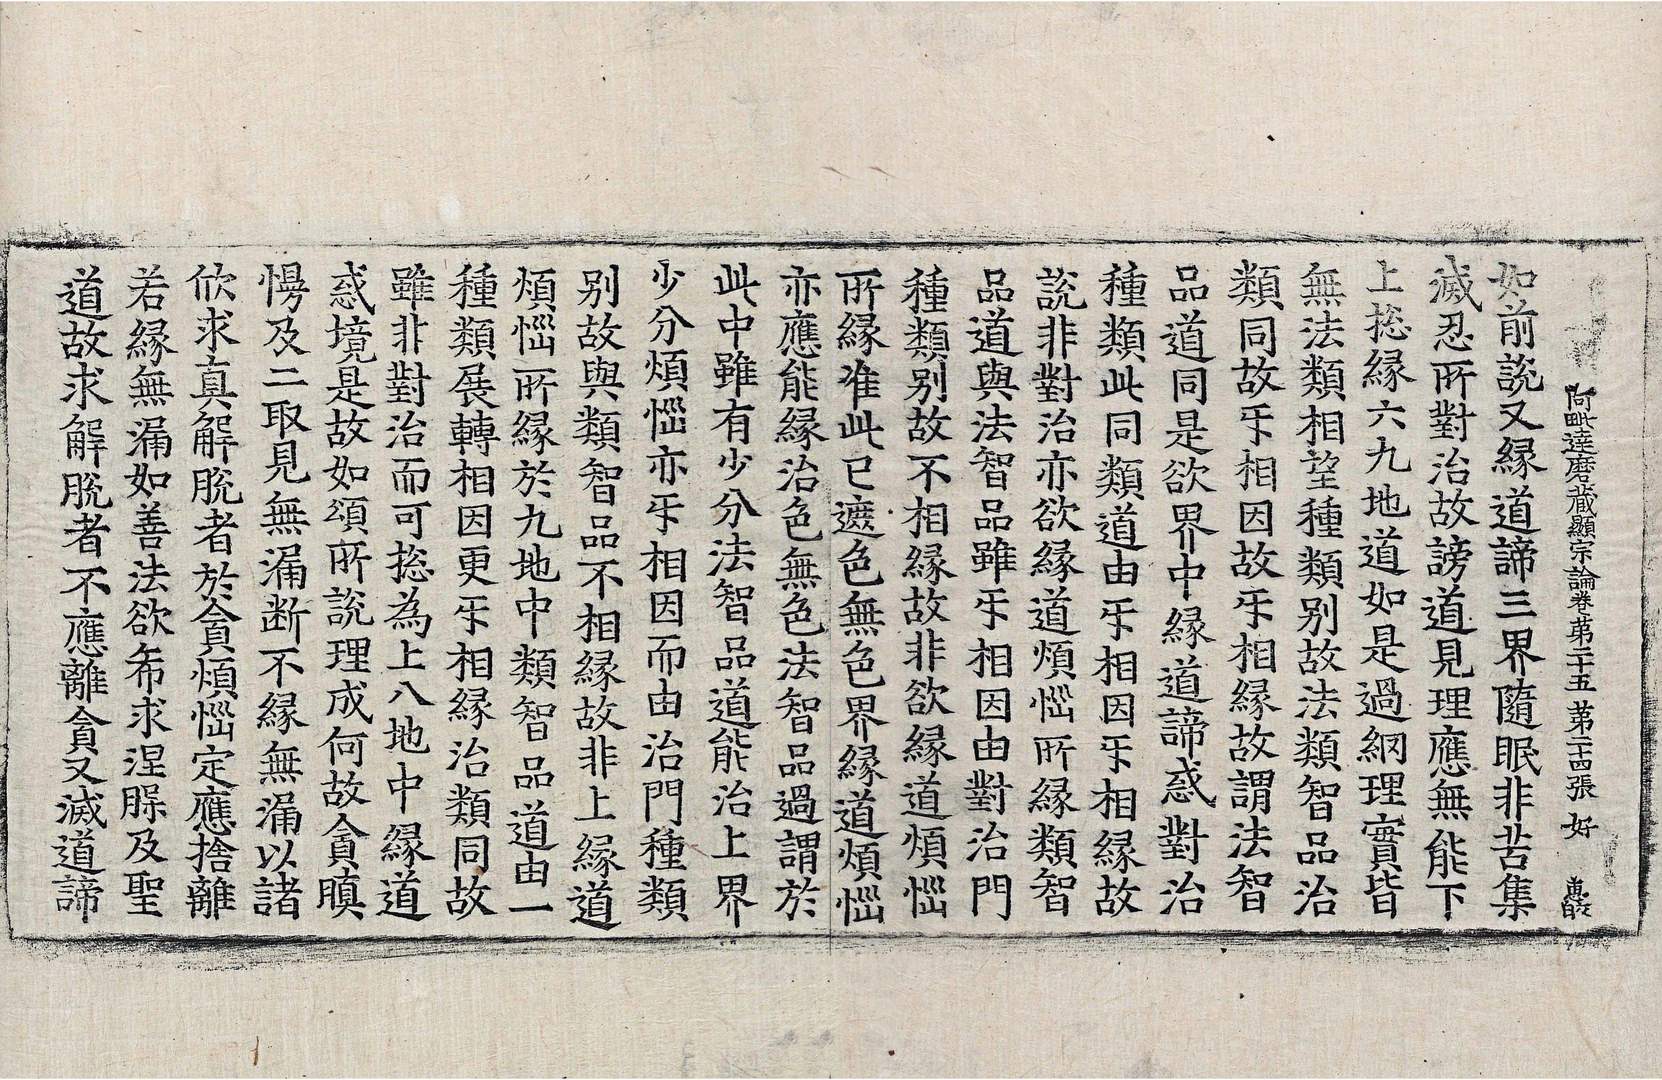 阿毗達磨藏顯宗論卷第二十五 第二十四張 好
如前說又緣道諦三界隨眠非苦集
滅忍所對治故謗道見理應無能下
上捴緣六九地道如是過網理實皆
無法類相望種類别故法類智品治
類同故㸦相因故㸦相緣故謂法智
品道同是欲界中緣道諦惑對治
種類此同類道由㸦相因㸦相緣故
說非對治亦欲緣道煩惱所緣類智
品道與法智品雖㸦相因由對治門
種類别故不相緣故非欲緣道煩惱
所緣准此已遮色無色界緣道煩惱
亦應能緣治色無色法智品過謂於
此中雖有少分法智品道能治上界
少分煩惱亦㸦相因而由治門種類
别故與類智品不相緣故非上緣道
煩惱所緣於九地中類智品道由一
種類展轉相因更㸦相緣治類同故
雖非對治而可捴為上八地中緣道
惑境是故如頌所說理成何故貪瞋
慢及二取見無漏断不緣無漏以諸
欣求真解脫者於貪煩惱定應捨離
若緣無漏如善法欲希求涅槃及聖
道故求解脫者不應離貪又滅道諦